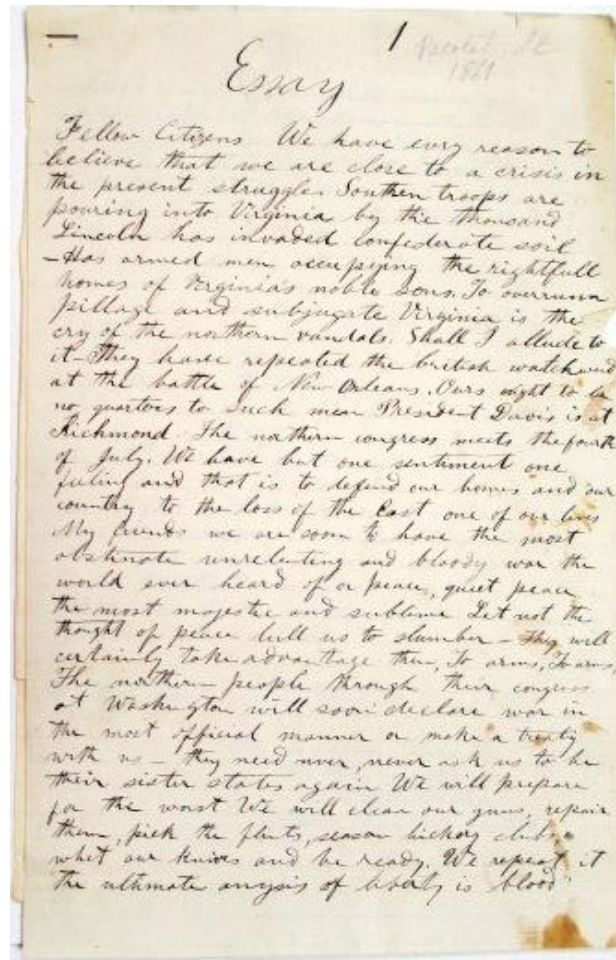 1
1861
Essay
Fellow Citizens We have evry reason to
believe that we are close to a crisis in
the present struggle. Southen troops are
pouring into Virginia by the thousand
Lincoln has invaded confederate soil
—Has armed men occupying the rightfull
homes of Virginia's noble sons. To overrun
pillage and subjugate Virginia is the
cry of the northern vandals. Shall I allude to
it—They have repeated the british watchword
at the battle of New Orleans. Ours ought to be
no quarters to such men President Davis is at
Richmond. The northern congress meets the fourth
of July. We have but one sentiment one
feeling and that is to defend our homes and our
country to the loss of the last one of our lives
My friends we are soon to have the most
obstinate unrelenting and bloody war the
world ever heard of or peace, quiet peace
the most majestic and sublime Let not the
thought of peace lull us to slumber — They will
certainly take advantage then, To arms, To arms,
The northern people through their congress
at Washington will soon declare war in
the most official manner or make a treaty
with us — they need never, never ask us to be
their sister states again We will prepare
for the worst We will clean our guns, repair
them, pick the flints, season hickory clubs
whet our knives and be ready. We repeat it
the ultimate anysis of liberty is blood